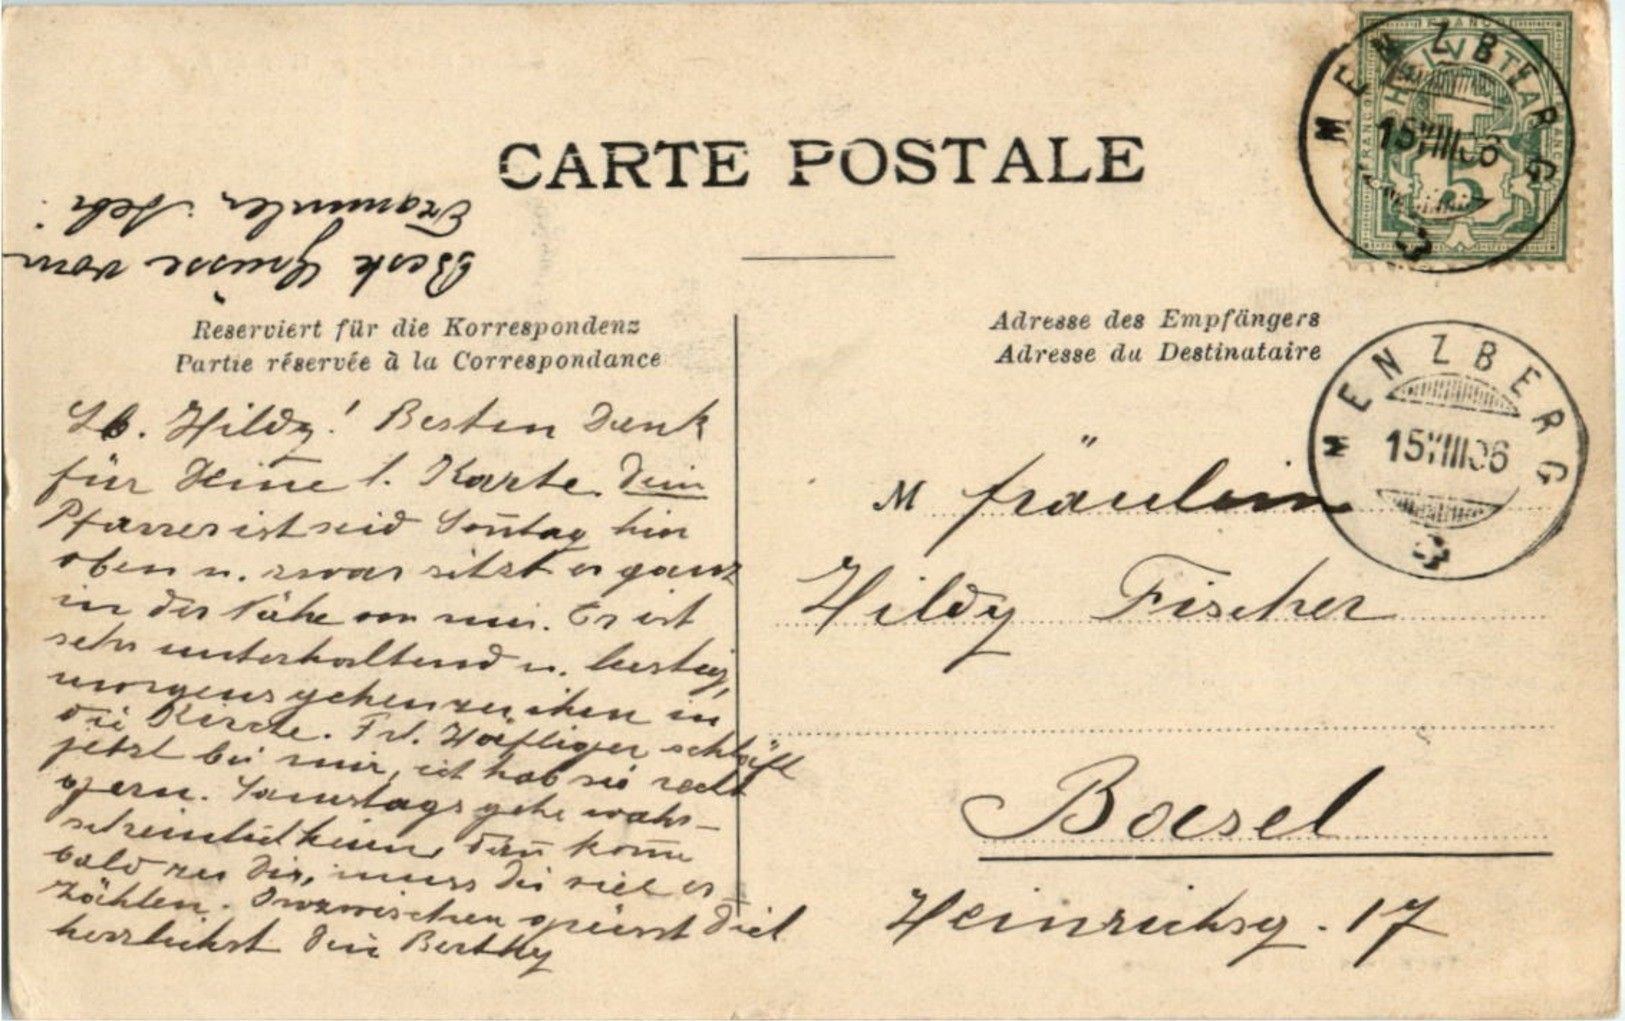 CARTE POSTALE
Beste Grüsse vom
Reserviert für die Korrespondenz
Partie réservée à la Correspondance
Lb. Hildy! Besten Dank
für Deine l. Karte. Dein
Pfarrer ist seid Soñtag hier
oben u. zwar sitzt er ganz
in der Nähe von mir. Er ist
sehr unterhaltend u. lustig,
morgens gehen zu ihm in
die Kirche. Frl. Häfliger schläft
jetzt bei mir, ich hab sie recht
gern. Samstags gehe wahr-
scheinlich heim, dañ kom̄e
bald zu Dir, muss Dir viel er-
zählen. Inzwischen grüsst Dich
herzlichst Dein Berthy
Adresse des Empfängers
Adresse du Destinataire
M fräulein
Hildy Fischer
Basel
Heinrichsg. 17
MENZBERG
15 VIII 06
MENZBERG
15 VIII 06
HELVETIA
FRANCO
5